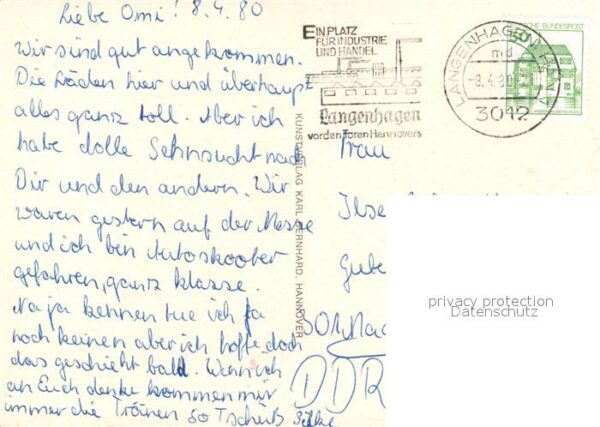 Liebe Omi! 8.4.80
Wir sind gut angekommen.
Die Läden hier und überhaupt
alles ganz toll. Aber ich
habe dolle Sehnsucht nach
Dir und den andern. Wir
waren gestern auf der Messe
und ich bin Autoskooter
gefahren, ganz klasse.
Na ja kennen tue ich ja
noch keinen aber ich hoffe doch
das geschieht bald. Wenn ich
an Euch denke kommen mir
immer die Tränen so Tschüß Silke
KUNSTVERLAG KARL BERNHARD, HANNOVER
EIN PLATZ
FÜR INDUSTRIE
UND HANDEL
Langenhagen
vor den Toren Hannovers
LANGENHAGEN, HAN
md
-8.4.80
3012
DEUTSCHE BUNDESPOST
Frau
Ilse
Gube
DDR
privacy protection
Datenschutz